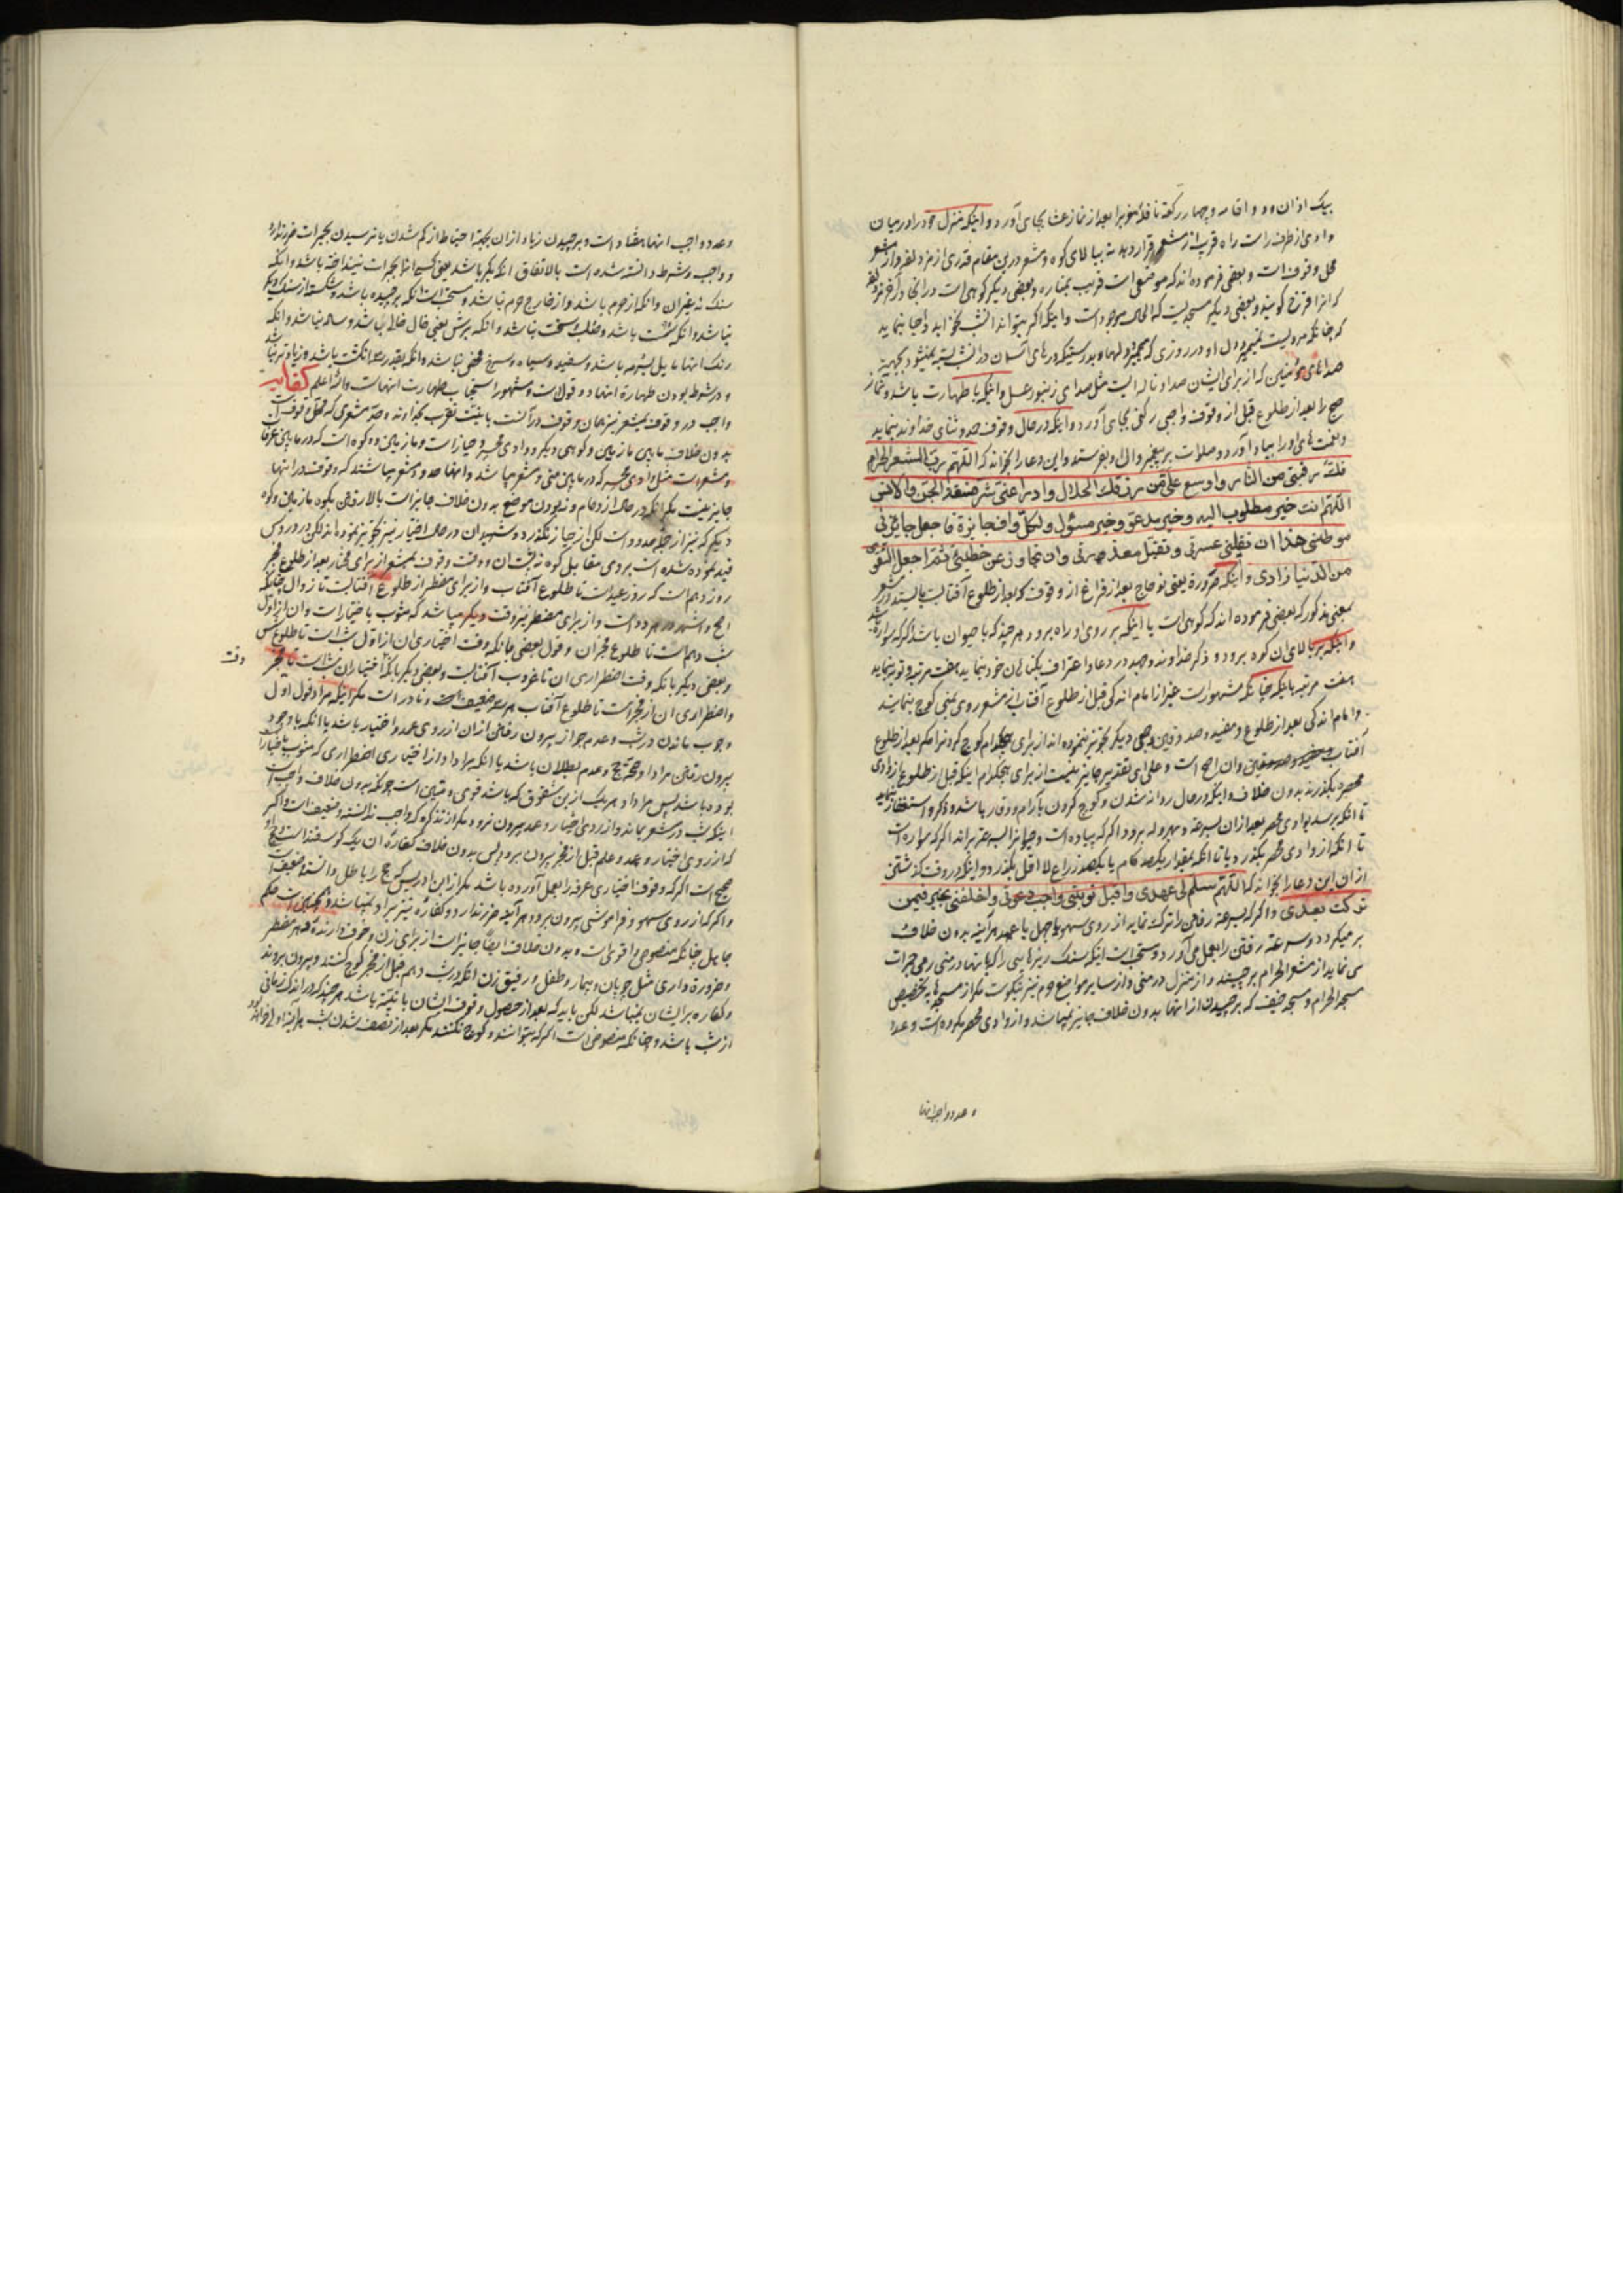 بیک اذان و دو اقامه و چهار رکعة نافلۀ مغربرا بعد از نماز عشا بجای آورد و اینکه منزل خود را در میان
وادی از طرف راست راه قریب از مشعر قرار دهد نه ببالای کوه و مشعر درین مقام قدری از مزدلفه و از مشعر
محل وقوف است و بعضی فرموده اند که موضعی است قریب بمناره و بعضی دیگر کوهی است در انجا
که انرا قزح گویند و بعضی دیگر مسجدیست که الحال موجود است و اینکه اگر بتواند انشب را احیا بنماید
که چنانکه مرویست نمیمیرد دل او در روزی که میمیرد دلها و بدرستیکه درهای آسمان در انشب بسته نمیشود بجهة
صداهای مؤمنین که از برای ایشان صدا و ناله ایست مثل صدای زنبور عسل و اینکه با طهارت باشد و نماز
صبح را بعد از طلوع قبل از وقوف واجبی رکنی بجای آورد و اینکه در حال وقوف حمد و ثنای خداوند بنماید
و نعمت های او را بیاد آورد و صلوات بر پیغمبر وال او بفرستد و این دعا را بخواند که اللّهم ربّ المشعر الحرام
فکّ رقبتی من النّار واوسع علیّ من رزقک الحلال وادرأ عنّی شرّ فسقة الجنّ والانس
اللّهم انت خیر مطلوب الیه وخیر مدعوّ وخیر مسئول ولکلّ وافد جایزة فاجعل جایزتی
موطنی هذا ان تقیلنی عثرتی وتقبل معذرتی وان تجاوز عن خطیئتی ثمّ اجعل التقوی
من الدّنیا زادی و اینکه صرورة یعنی نو حاج بعد از فراغ از وقوف که بعد از طلوع آفتابست بایستد در مشعر
بمعنی مذکور که بعضی فرموده اند که کوهی است یا اینکه بر روی او راه برود هر چند که با حیوان باشد اگر که سواره باشد
و اینکه بر بالای ان کوه برود و ذکر خداوند و جهد در دعا و اعتراف بگناهان خود بنماید هفت مرتبه و توبه بنماید
هفت مرتبه با اینکه چنانکه مشهور است غیر از امام اندکی قبل از طلوع آفتاب از مشعر روی بمنی کوچ بنمایند
و امام اندکی بعد از طلوع و مفید و صدوقین و جمعی دیگر تجویز ننموده اند از برای هیچکدام کوچ کردن را مگر بعد از طلوع
آفتاب و ان احوط است و علی ای تقدیر جایز نیست از برای هیچکدام اینکه قبل از طلوع از وادی
محسّر بگذرند بدون خلاف و اینکه در حال روانه شدن و کوچ کردن با آرام و وقار باشد و ذکر و استغفار بنماید
تا انکه برسد بوادی محسر بعد از ان بسرعة و هروله برود اگر که پیاده است و حیوانرا بسرعة براند اگر که سواره است
تا انکه از وادی محسر بگذرد یا تا انکه بمقدار یکصد کام یا یکصد زراع لا اقل بگذرد و اینکه در وقت گذشتن
از ان این دعا را بخواند که اللّهم سلّم لی عهدی واقبل توبتی واجب دعوتی واخلفنی بخیر فیمن
ترکت بعدی و اگر که بسرعة رفتن را ترک نماید از روی سهو یا جهل یا عمد هر آینه بدون خلاف
بر میگردد و بسرعة رفتن را بعمل می آورد و مستحب است اینکه سنک ریزهایی را که با انها در منی رمی جمرات
می نماید از مشعر الحرام بر چیند و از منزل در منی و از سایر مواضع حرم نیز نیکوست مگر از مسجدها بتخصیص
مسجد الحرام و مسجد خیف که بر چیدن از انها بدون خلاف جایز نمیباشد و از وادی محسر مکروه است و عدد
و عدد واجب انها
و عدد واجب انها هفتاد است و بر چیدن زیاد از ان بجهة احتیاط از کم شدن یا نرسیدن بجمرات ضرر ندارد
و واجب و شرط دانسته شده است بالاتفاق انکه بکر باشد یعنی کسی انرا بجمرات نینداخته باشد و انکه
سنک نه غیر ان و انکه از حرم باشد و از خارج حرم نباشد و مستحب است انکه بر چیده باشد و شکسته از سنک دیگر
نباشد و انکه سست باشد و صلب و سخت نباشد و انکه برش یعنی خال خالی باشد و ساده نباشد و انکه
رنک انها مایل بسرمه باشد و سفید و سیاه و سرخ محض نباشد و انکه بقدر سر انکشت باشد و زیادتر نباشد
و در شرط بودن طهارة انها دو قول است و مشهور استحباب طهارت انهاست والله اعلم
واجب در وقوف بمشعر نیز همان وقوف در آنست با نیت تقرّب بخداوند و حدّ مشعری که محل وقوف است
بدون خلاف مابین مازمین و کوهی دیگر و وادی محسر و حیاز است و مازمین دو کوه است که در مابین عرفات
و مشعر است مثل وادی محسر که در مابین منی و مشعر میباشد و انها حدود مشعر میباشند که وقوف در انها
جایز نیست مگر انکه در حال ازدحام و نبودن موضع بدون خلاف جایز است بالا رفتن بکوه مازمین و کوه
دیگر که نیز از جمله حدود است لکن از حیاز نگذرد و شهیدان در حال اختیار نیز تجویز نموده اند لکن در دروس
قید نموده شده است بروی مقابل کوه نه پشت ان و وقت وقوف بمشعر از برای مختار بعد از طلوع فجر
روز دهم است که روز عید است تا طلوع آفتاب و از برای مضطر از طلوع آفتابست تا زوال چنانکه
اصح و اشهر در هر دو است و از برای مضطر نیز وقت دیگر میباشد که مشوب باختیار است و ان از اول
شب دهم است تا طلوع فجر ان و قول بعضی بانکه وقت اختیاری ان از اول شب است تا طلوع شمس
و بعضی دیگر بانکه وقت اضطراری ان تا غروب آفتابست و بعضی دیگر بانکه اختیاری ان شب است تا فجر وقت
و اضطراری ان از فجر است تا طلوع آفتاب هر سه ضعیف و نادر است مگر اینکه مراد قول اول
وجوب ماندن در شب و عدم جواز بیرون رفتن از ان از روی عمد و اختیار باشد یا انکه با وجود
بیرون رفتن مراد او صحّة حج و عدم بطلان باشد یا انکه مراد او از اختیاری اضطراری که مشوب باختیار
بوده باشد پس مراد او هر یک ازین شقوق که باشد قوی و متین است چونکه بدون خلاف واجب است
اینکه شب در مشعر بماند و از روی اختیار و عمد بیرون نرود مگر از تذکره که واجب ندانسته و ضعیف است و اگر
که از روی اختیار و عمد و علم قبل از فجر بیرون برود پس بدون خلاف کفارۀ ان یک گوسفند است و حج او
صحیح است اگر که وقوف اختیاری عرفه را بعمل آورده باشد مگر از ابن ادریس که حج را باطل دانسته و ضعیف است
و اگر که از روی سهو و فراموشی بیرون برود هر آینه ضرر ندارد و کفاره نیز بر او نمیباشد و همچنین است حکم
جاهل چنانکه منصوص و اقوی است و بدون خلاف ایضا جایز است از برای زن و خوف دارنده و هر مضطر
و ضرورة داری مثل چوپان و بیمار و طفل و رفیق زن انکه در شب دهم قبل از فجر کوچ کنند و بیرون بروند
و کفاره بر ایشان نمیباشد لکن باید که بعد از حصول وقوف ایشان با نیّة باشد هر چند که در اندک زمانی
از شب باشد و چنانکه منصوص است اگر که بتوانند کوچ نکنند مگر بعد از نصف شدن شب